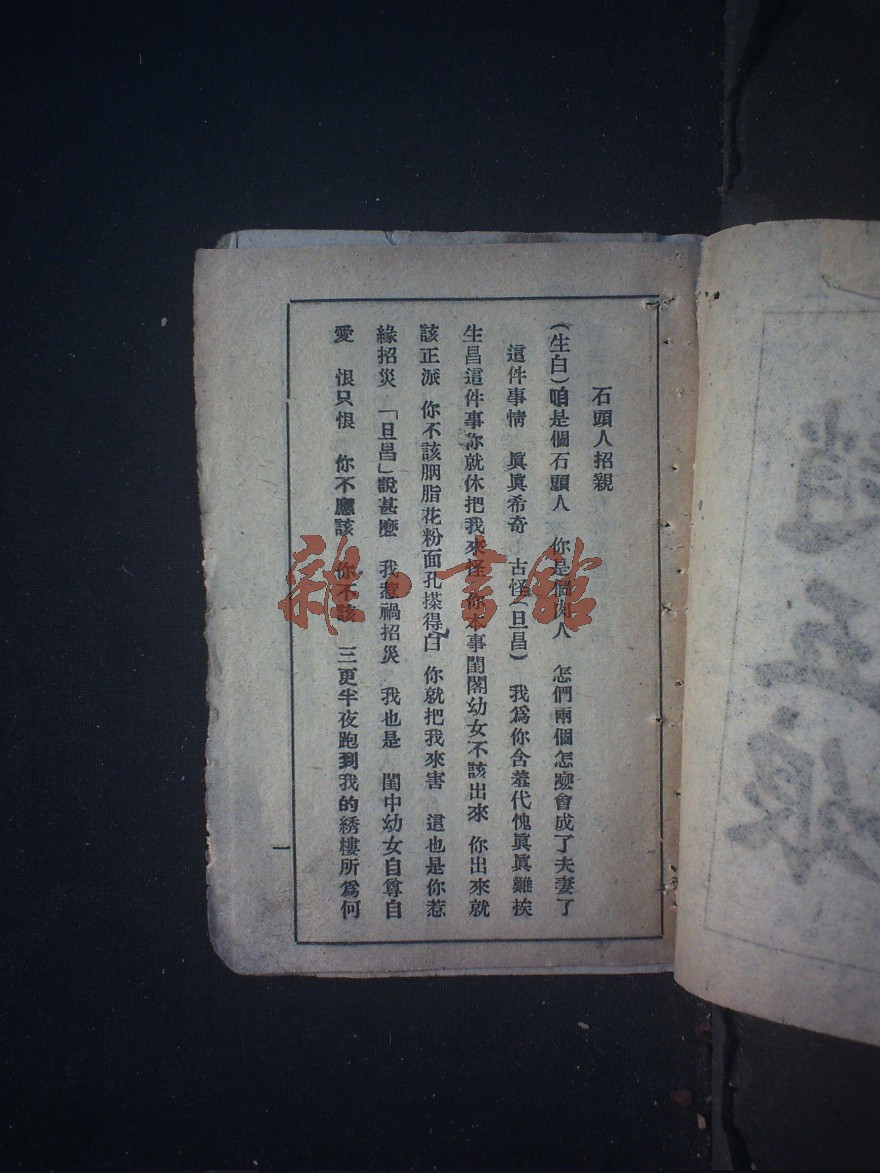 石頭人招親
(生白)咱是個石頭人 你是個肉人 怎們兩個怎麽會成了夫妻了
這件事情 眞眞希奇 古怪(旦昌) 我爲你含羞代愧眞眞難挨
生昌這件事你就休把我來怪 你本事閨閣幼女不該出來 你出來就
該正派 你不該胭脂花粉面孔搽得白 你就把我來害 這也是你惹
緣招災 「旦昌」說甚麽 我惹禍招災 我也是 閨中幼女自尊自
愛 恨只恨 你不應該 你不該 三更半夜跑到我的綉樓所爲何
一
雜·書館
五娘